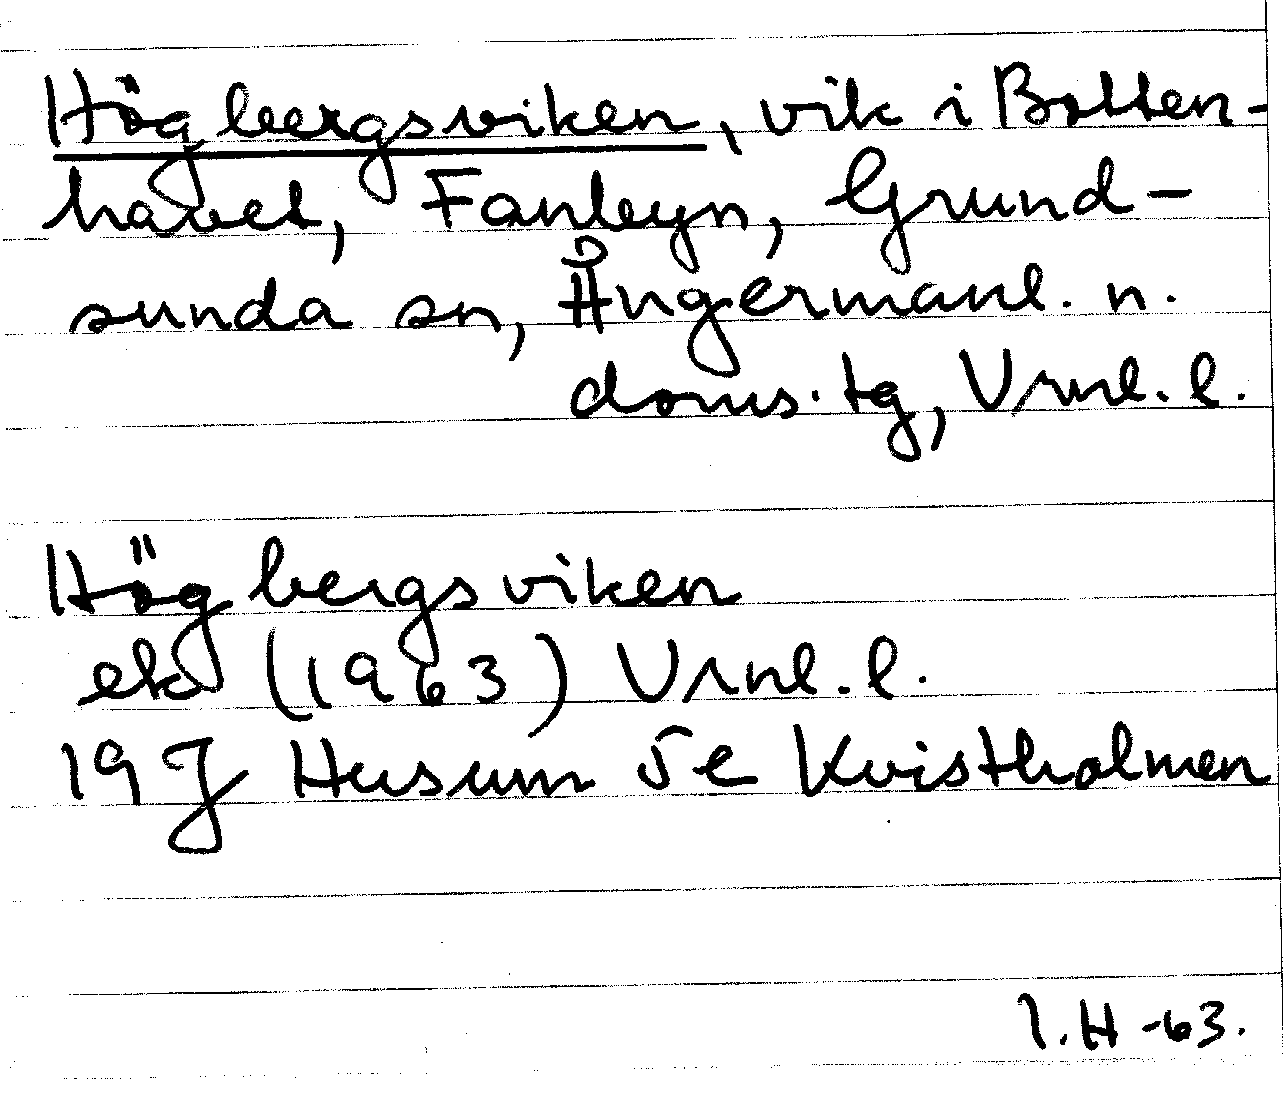 Högbergsviken, vik i Botten-
havet, Fanbyn, Grund-
sunda sn, Ångermanl. n.
doms. tg, Vrnl. l.
Högbergsviken
ek (1963) Vrnl. l.
19 J Husum 5e Kvistholmen
I.H -63.